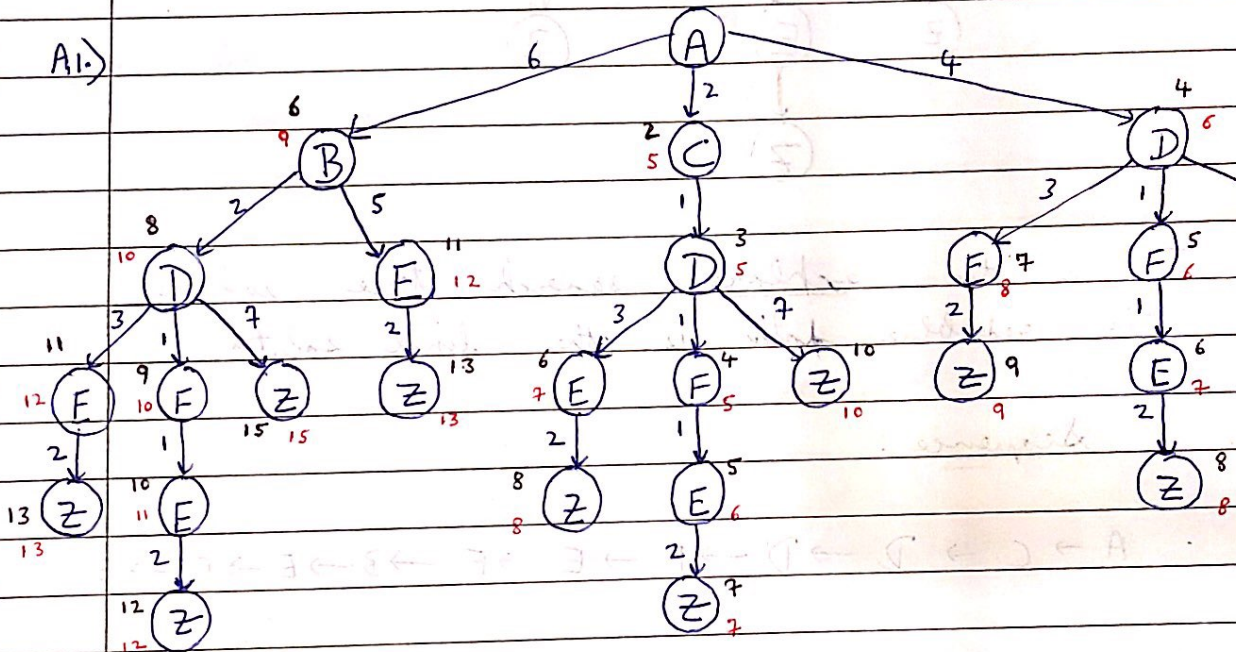 A1.) A
6 2 4
6 9 B 2 5 C 4 6 D
2 5 1 3 1
8 10 D E 11 12 D 3 5 E 7 8 F 5 6
3 1 7 2 3 1 7 2 1
11 12 E 9 10 F Z 15 15 Z 13 13 6 7 E F 4 5 Z 10 10 Z 9 9 E 6 7
2 1 2 1 2
13 13 Z 10 11 E 8 8 Z E 5 6 Z 8 8
2 2
12 12 Z Z 7 7